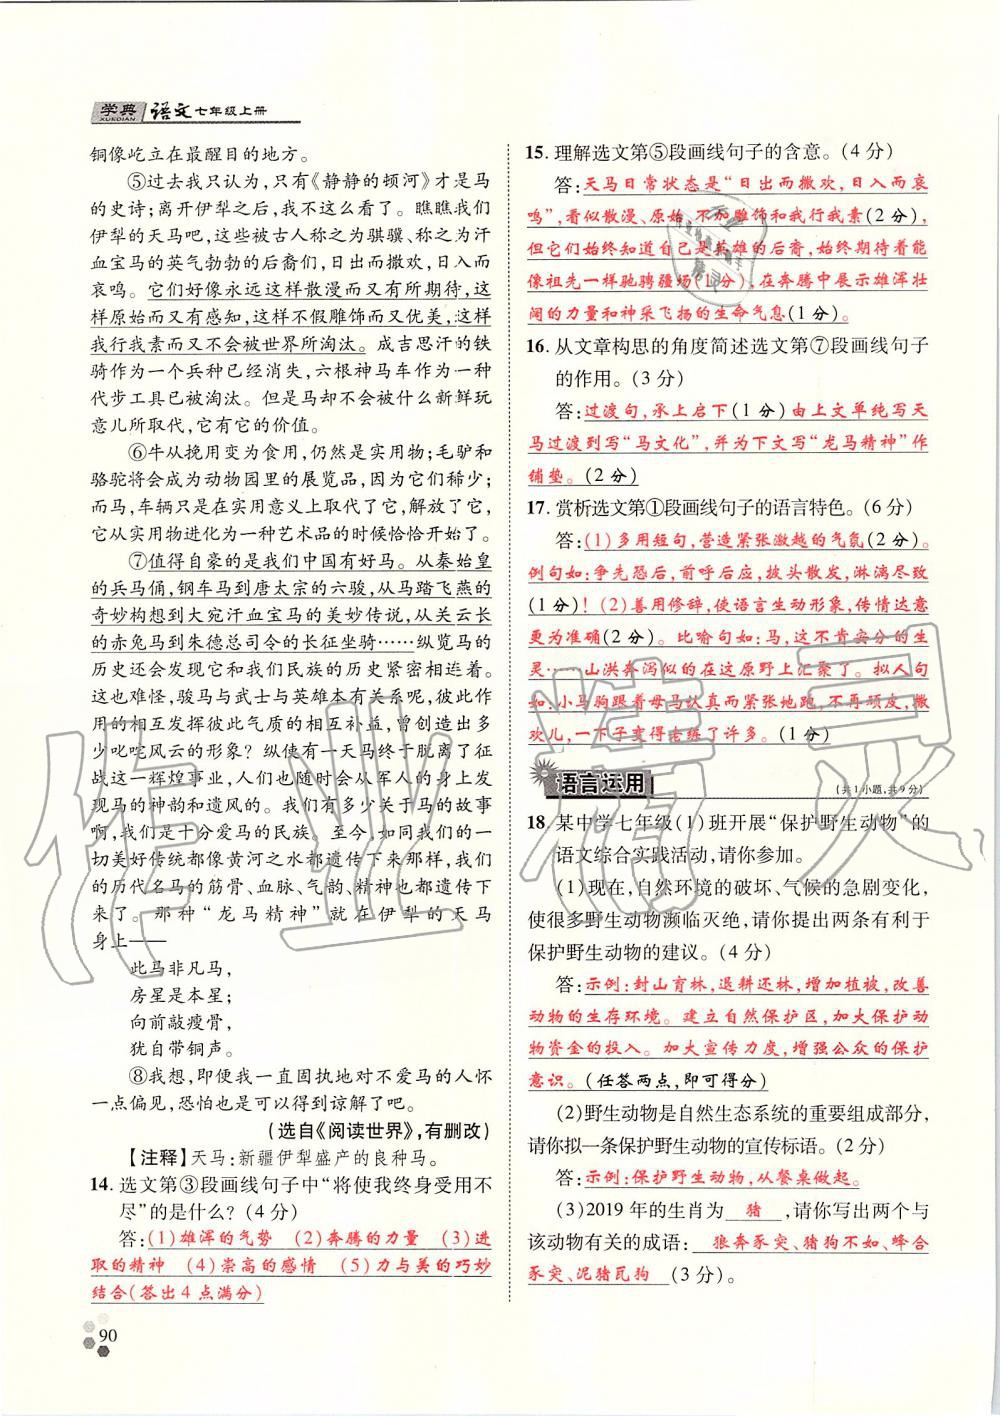 学典 XUEDIAN 语文 七年级上册
铜像屹立在最醒目的地方。
⑤过去我只认为,只有《静静的顿河》才是马
的史诗;离开伊犁之后,我不这么看了。瞧瞧我们
伊犁的天马吧,这些被古人称之为骐骥、称之为汗
血宝马的英气勃勃的后裔们,日出而撒欢,日入而
哀鸣。它们好像永远这样散漫而又有所期待,这
样原始而又有感知,这样不假雕饰而又优美,这样
我行我素而又不会被世界所淘汰。成吉思汗的铁
骑作为一个兵种已经消失,六根神马车作为一种
代步工具已被淘汰。但是马却不会被什么新鲜玩
意儿所取代,它有它的价值。
⑥牛从挽用变为食用,仍然是实用物;毛驴和
骆驼将会成为动物园里的展览品,因为它们稀少;
而马,车辆只是在实用意义上取代了它,解放了它,
它从实用物进化为一种艺术品的时候恰恰开始了。
⑦值得自豪的是我们中国有好马。从秦始皇
的兵马俑,铜车马到唐太宗的六骏,从马踏飞燕的
奇妙构想到大宛汗血宝马的美妙传说,从关云长
的赤兔马到朱德总司令的长征坐骑……纵览马的
历史还会发现它和我们民族的历史紧密相连着。
这也难怪,骏马与武士与英雄本有关系呢,彼此作
用的相互发挥彼此气质的相互补益,曾创造出多
少叱咤风云的形象?纵使有一天马终于脱离了征
战这一辉煌事业,人们也随时会从军人的身上发
现马的神韵和遗风的。我们有多少关于马的故事
啊,我们是十分爱马的民族。至今,如同我们的一
切美好传统都像黄河之水都遗传下来那样,我们
的历代名马的筋骨、血脉、气韵、精神也都遗传下
来了。那种“龙马精神”就在伊犁的天马
身上——
此马非凡马,
房星是本星;
向前敲瘦骨,
犹自带铜声。
⑧我想,即便我一直固执地对不爱马的人怀
一点偏见,恐怕也是可以得到谅解了吧。
(选自《阅读世界》,有删改)
【注释】天马:新疆伊犁盛产的良种马。
14. 选文第③段画线句子中“将使我终身受用不
尽”的是什么?(4分)
答:(1)雄浑的气势 (2)奔腾的力量 (3)进
取的精神 (4)崇高的感情 (5)力与美的巧妙
结合(答出4点满分)
90
15. 理解选文第⑤段画线句子的含意。(4分)
答:天马日常状态是“日出而撒欢,日入而哀
鸣”,看似散漫、原始、不加雕饰和我行我素(2分),
但它们始终知道自己是英雄的后裔,始终期待着能
像祖先一样驰骋疆场(1分),在奔腾中展示雄浑壮
阔的力量和神采飞扬的生命气息(1分)。
16. 从文章构思的角度简述选文第⑦段画线句子
的作用。(3分)
答:过渡句,承上启下(1分)由上文单纯写天
马过渡到写“马文化”,并为下文写“龙马精神”作
铺垫。(2分)
17. 赏析选文第①段画线句子的语言特色。(6分)
答:(1)多用短句,营造紧张激越的气氛(2分)。
例句如:争先恐后,前呼后应,披头散发,淋漓尽致
(1分)!(2)善用修辞,使语言生动形象,传情达意
更为准确(2分)。比喻句如:马,这不肯安分的生
灵……山洪奔泻似的在这原野上汇聚了。拟人句
如:小马驹跟着母马认真而紧张地跑,不再顽皮、撒
欢儿,一下子变得老练了许多。(1分)
语言运用 (共1小题,共9分)
18. 某中学七年级(1)班开展“保护野生动物”的
语文综合实践活动,请你参加。
(1)现在,自然环境的破坏、气候的急剧变化,
使很多野生动物濒临灭绝,请你提出两条有利于
保护野生动物的建议。(4分)
答:示例:封山育林,退耕还林,增加植被,改善
动物的生存环境。建立自然保护区,加大保护动
物资金的投入。加大宣传力度,增强公众的保护
意识。(任答两点,即可得分)
(2)野生动物是自然生态系统的重要组成部分,
请你拟一条保护野生动物的宣传标语。(2分)
答:示例:保护野生动物,从餐桌做起。
(3)2019年的生肖为 猪 ,请你写出两个与
该动物有关的成语: 狼奔豕突、猪狗不如、蜂合
豕突、泥猪瓦狗 (3分)。
作业精灵